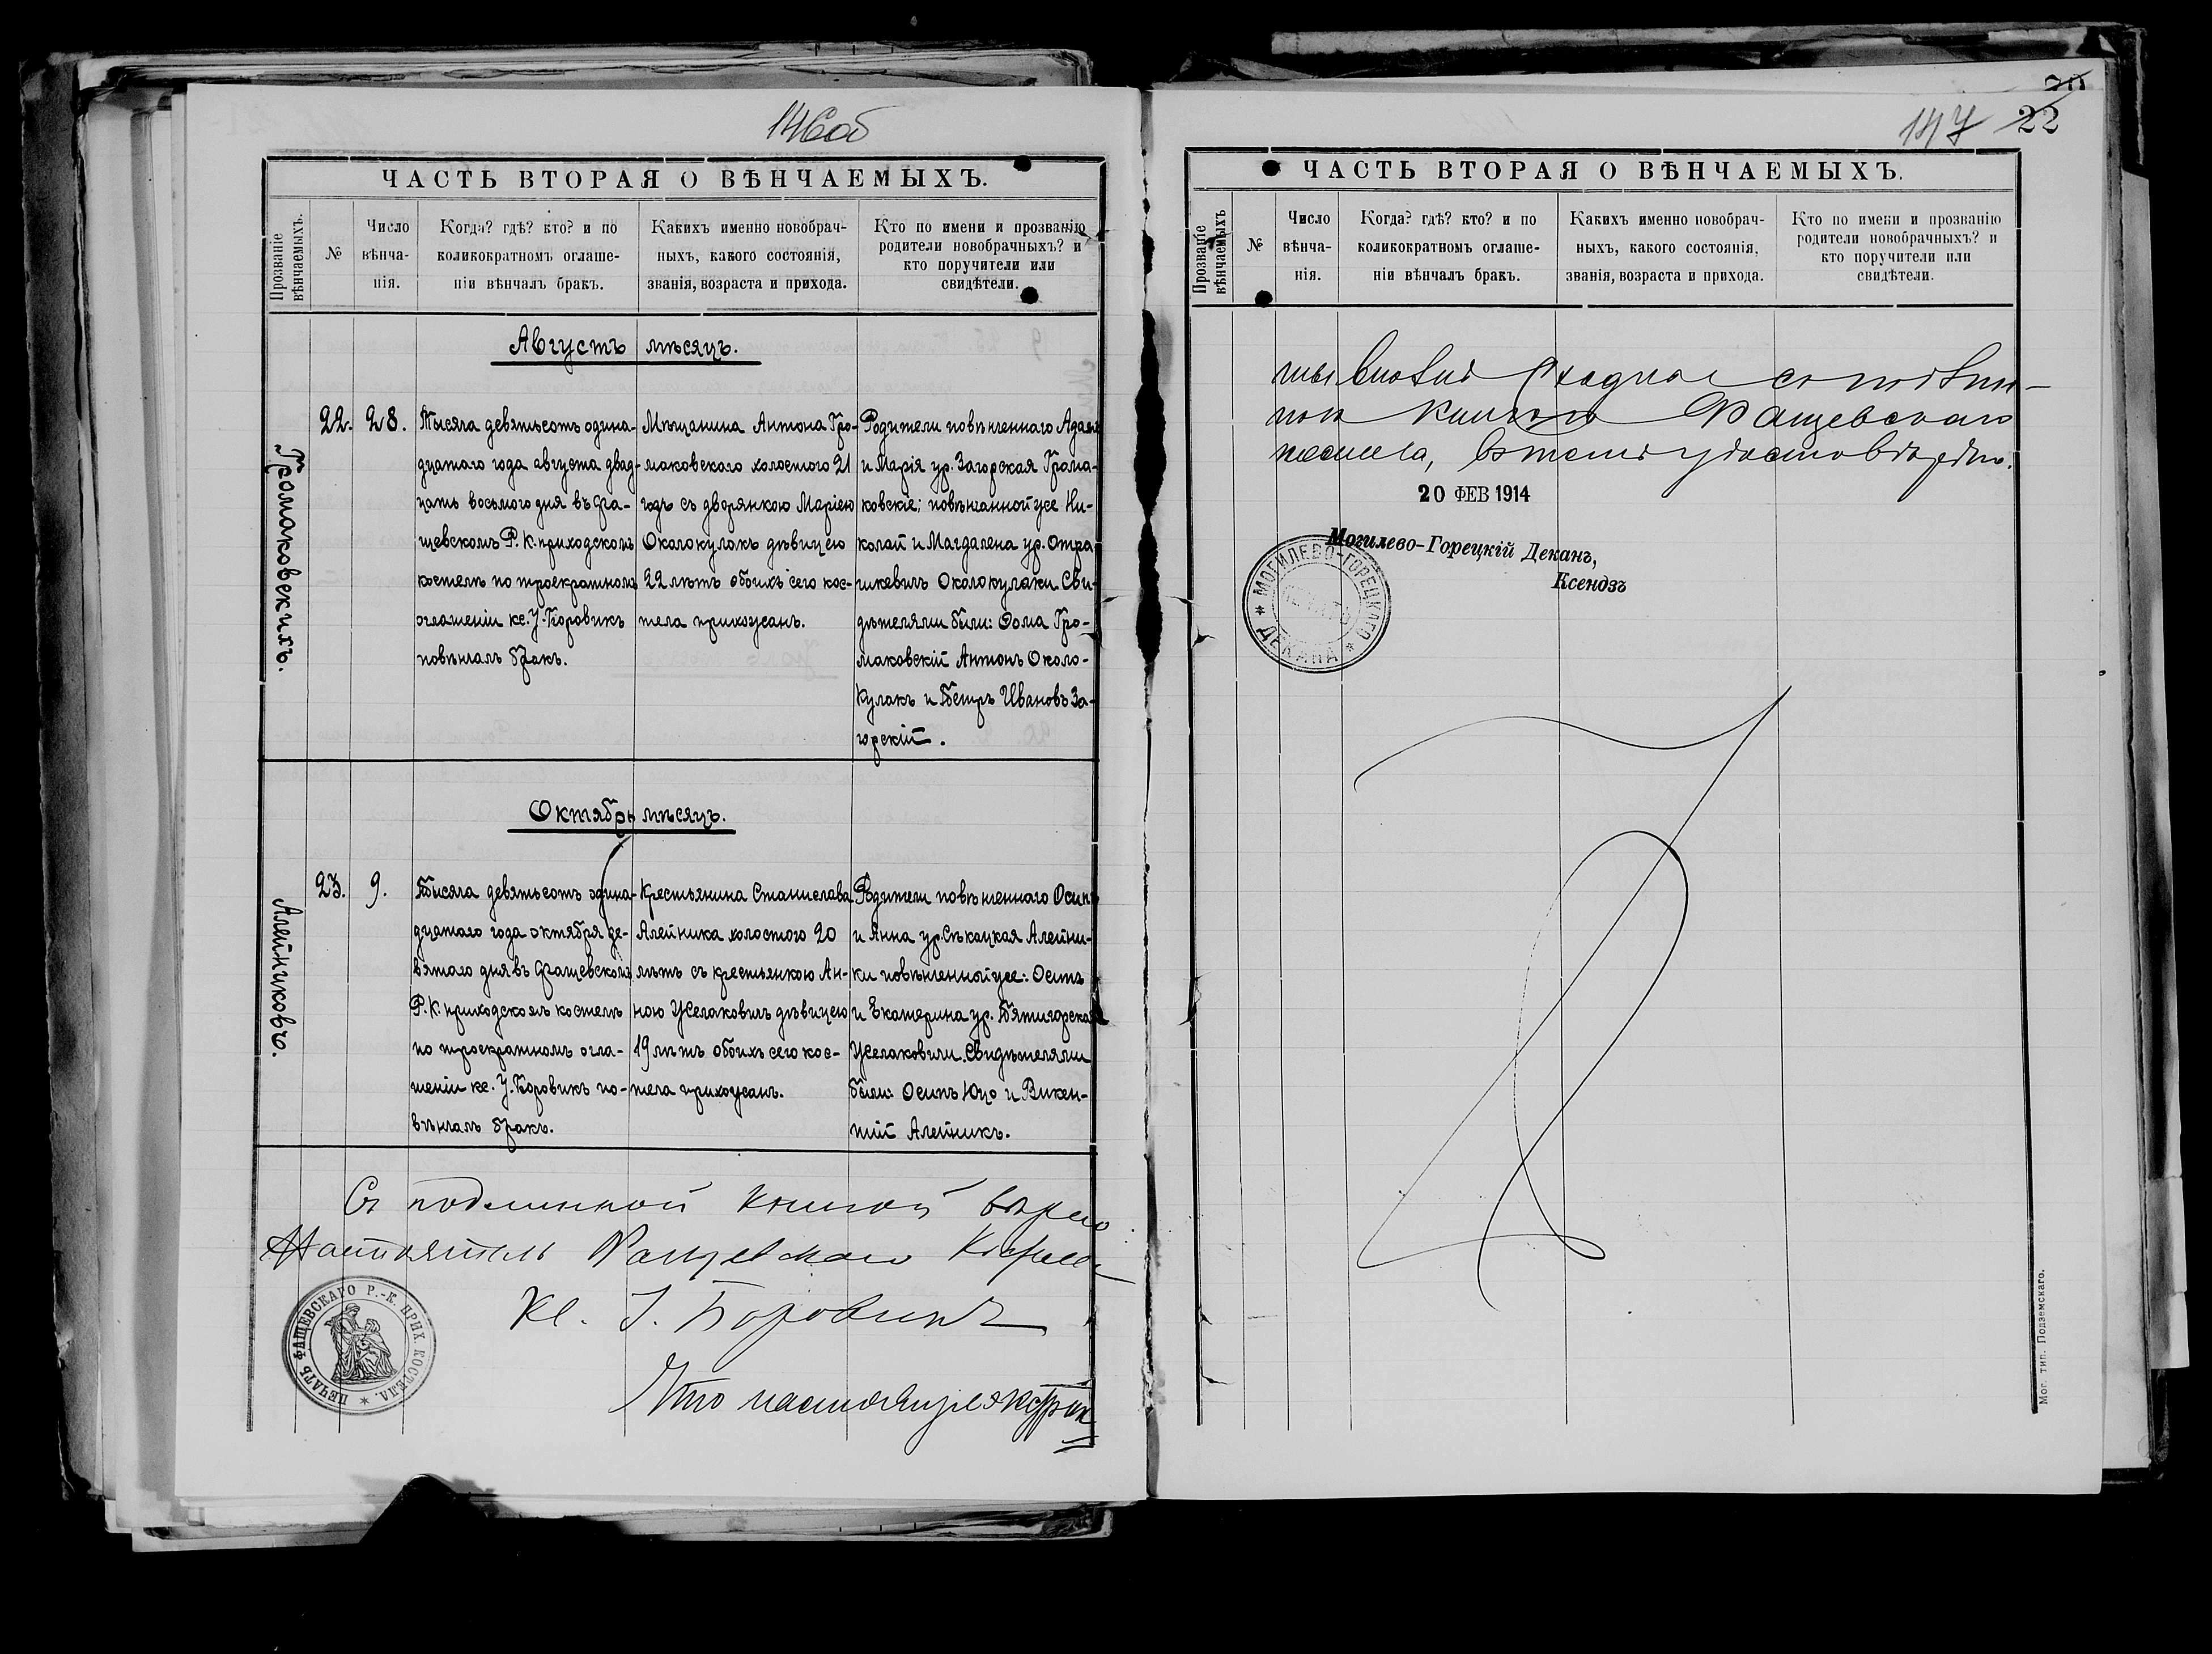 146об
ЧАСТЬ ВТОРАЯ О ВѢНЧАЕМЫХЪ.
Прозваніе вѣнчаемыхъ.
№
Число
вѣнча-
нія.
Когда? гдѣ? кто? и по
коликократномъ оглаше-
ніи вѣнчалъ бракъ.
Какихъ именно новобрач-
ныхъ, какого состоянія,
званія, возраста и прихода.
Кто по имени и прозванію
родители новобрачныхъ? и
кто поручители или
свидѣтели.
Августъ мѣсяцъ.
Громаковскихъ.
22.
28.
Тысяча девятьсотъ одина-
дцатаго года августа двад-
цать восьмого дня въ Фа-
щевскомъ Р. К. приходскомъ
костелѣ по троекратномъ
оглашеніи кс. У. Боровикъ
повѣнчалъ бракъ.
Мѣщанина Антона Гро-
маковскаго холостого 21
годъ съ дворянкою Маріею
Околокулакъ дѣвицею
22 лѣтъ обоихъ сего кос-
тела прихожанъ.
Родители повѣнченнаго Адамъ
и Марія ур. Загорская Грома-
ковскіе; повѣнчанной же Ни-
колай и Магдалена ур. Отра
шкевичъ Околокулаки. Сви-
дѣтелями были: Ѳома Гро-
маковскій Антонъ Около-
Кулакъ и Петръ Ивановъ За-
горскій.
Октябрь мѣсяцъ.
Алейниковъ.
23.
9.
Тысяча девятьсотъ одина-
дцатаго года октября де-
вятаго дня въ Фащевскомъ
Р. К. приходскомъ костелѣ
по троекратномъ огла-
шеніи кс. У. Боровикъ по-
вѣнчалъ бракъ.
Крестьянина Станислава
Алейника холостого 20
лѣтъ съ крестьянкою Ан-
ною Жслаковичъ дѣвицею
19 лѣтъ обоихъ сего кос-
тела прихожанъ.
Родители повѣнченнаго Осипъ
и Анна ур. Сѣкацкая Алейни-
ки повѣнченной же: Осипъ
и Екатерина ур. Пятигорская
Жслаковичи. Свидѣтелями
были: Осипъ Юцо и Викен-
тій Алейникъ.
Съ подлинной книгой вѣрно:
Настоятель Фащевскаго Костела
Кс. У. Боровикъ
ПЕЧАТЬ ФАЩЕВСКАГО Р.-К. ПРИХ. КОСТЕЛА.
Что настоящая
147
22
ЧАСТЬ ВТОРАЯ О ВѢНЧАЕМЫХЪ.
Прозваніе вѣнчаемыхъ
№
Число
вѣнча-
нія.
Когда? гдѣ? кто? и по
коликократномъ оглаше-
ніи вѣнчалъ бракъ.
Какихъ именно новобрач-
ныхъ, какого состоянія,
званія, возраста и прихода.
Кто по имени и прозванію
родители новобрачныхъ? и
кто поручители или
свидѣтели.
вполнѣ сходна съ
книгою Фащевскаго
костела, въ томъ удостовѣряю.
20 ФЕВ 1914
Могилево-Горецкій Деканъ,
Ксендзъ
МОГИЛЕВО-ГОРЕЦКАГО ДЕКАНА
Мог. тип. Подземскаго.